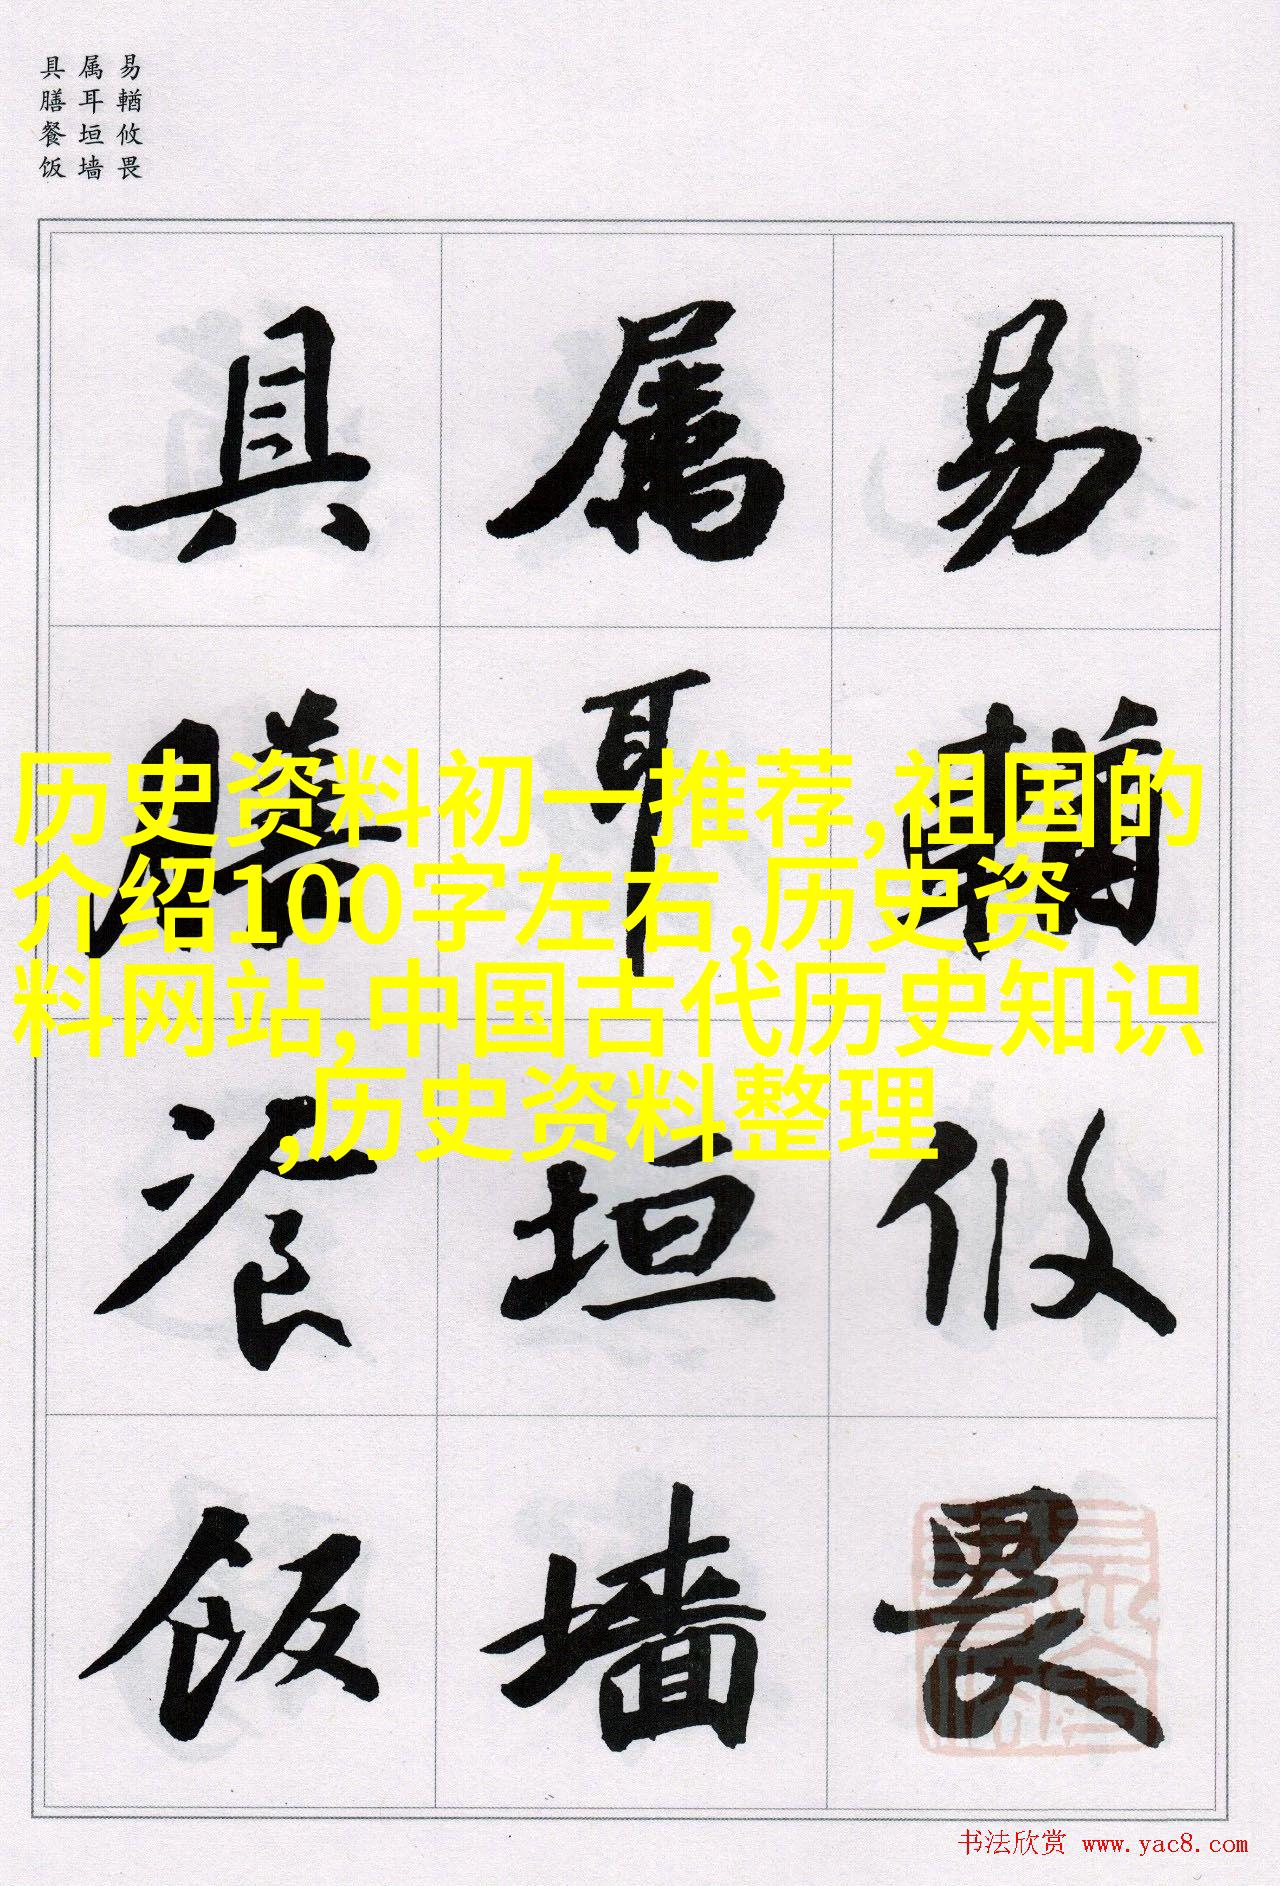 易輶攸畏
属耳垣墙
具膳餐饭
易輶攸畏
属耳垣墙
具膳飡饭
历史资料初一推荐,祖国的
介绍100字左右,历史资
料网站,中国古代历史知识
,历史资料整理
书法欣赏 www.yac8.com